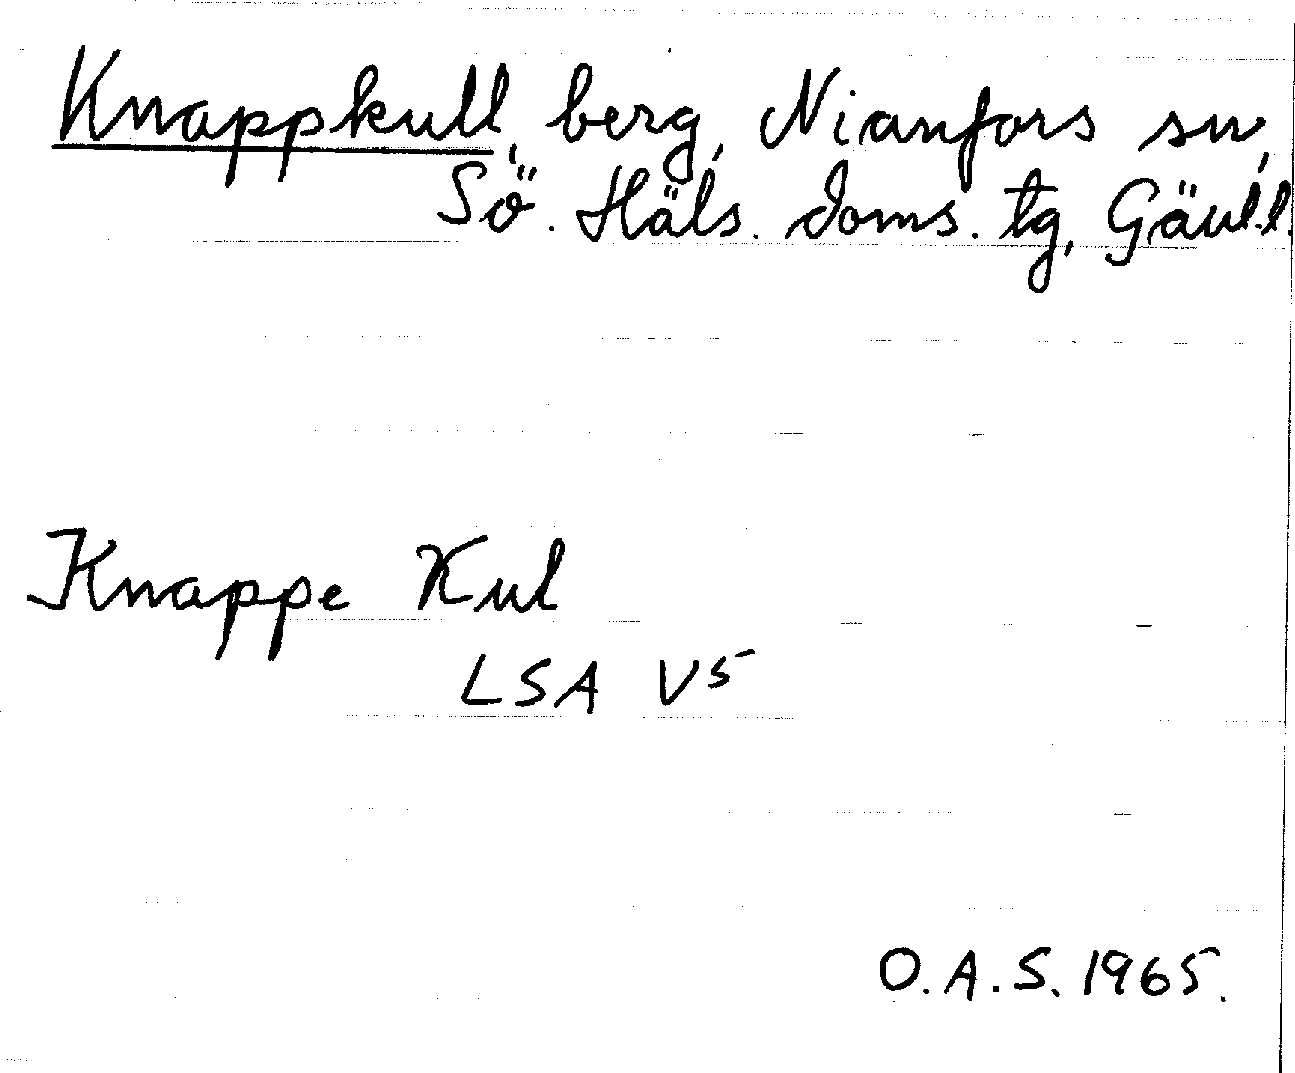 Knappkull, berg, Nianfors sn,
Sö. Häls. doms. tg, Gävl.l.
Knappe Kul
LSA V5
O.A.S. 1965.